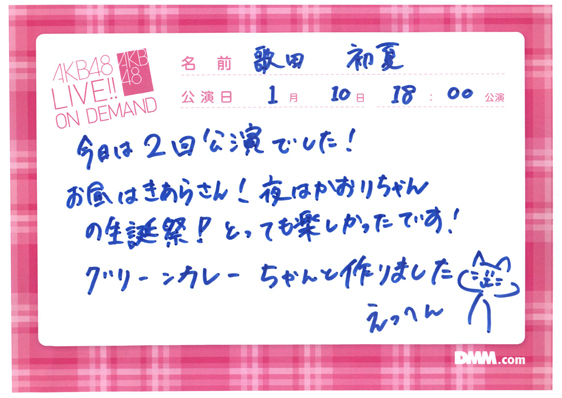 AKB48
LIVE!!
ON DEMAND
AKB
48
名前 歌田 初夏
公演日 1月 10日 18:00 公演
今日は2回公演でした!
お昼はきあらさん!夜はかおりちゃん
の生誕祭!とっても楽しかったです!
グリーンカレー ちゃんと作りました
えっへん
DMM.com